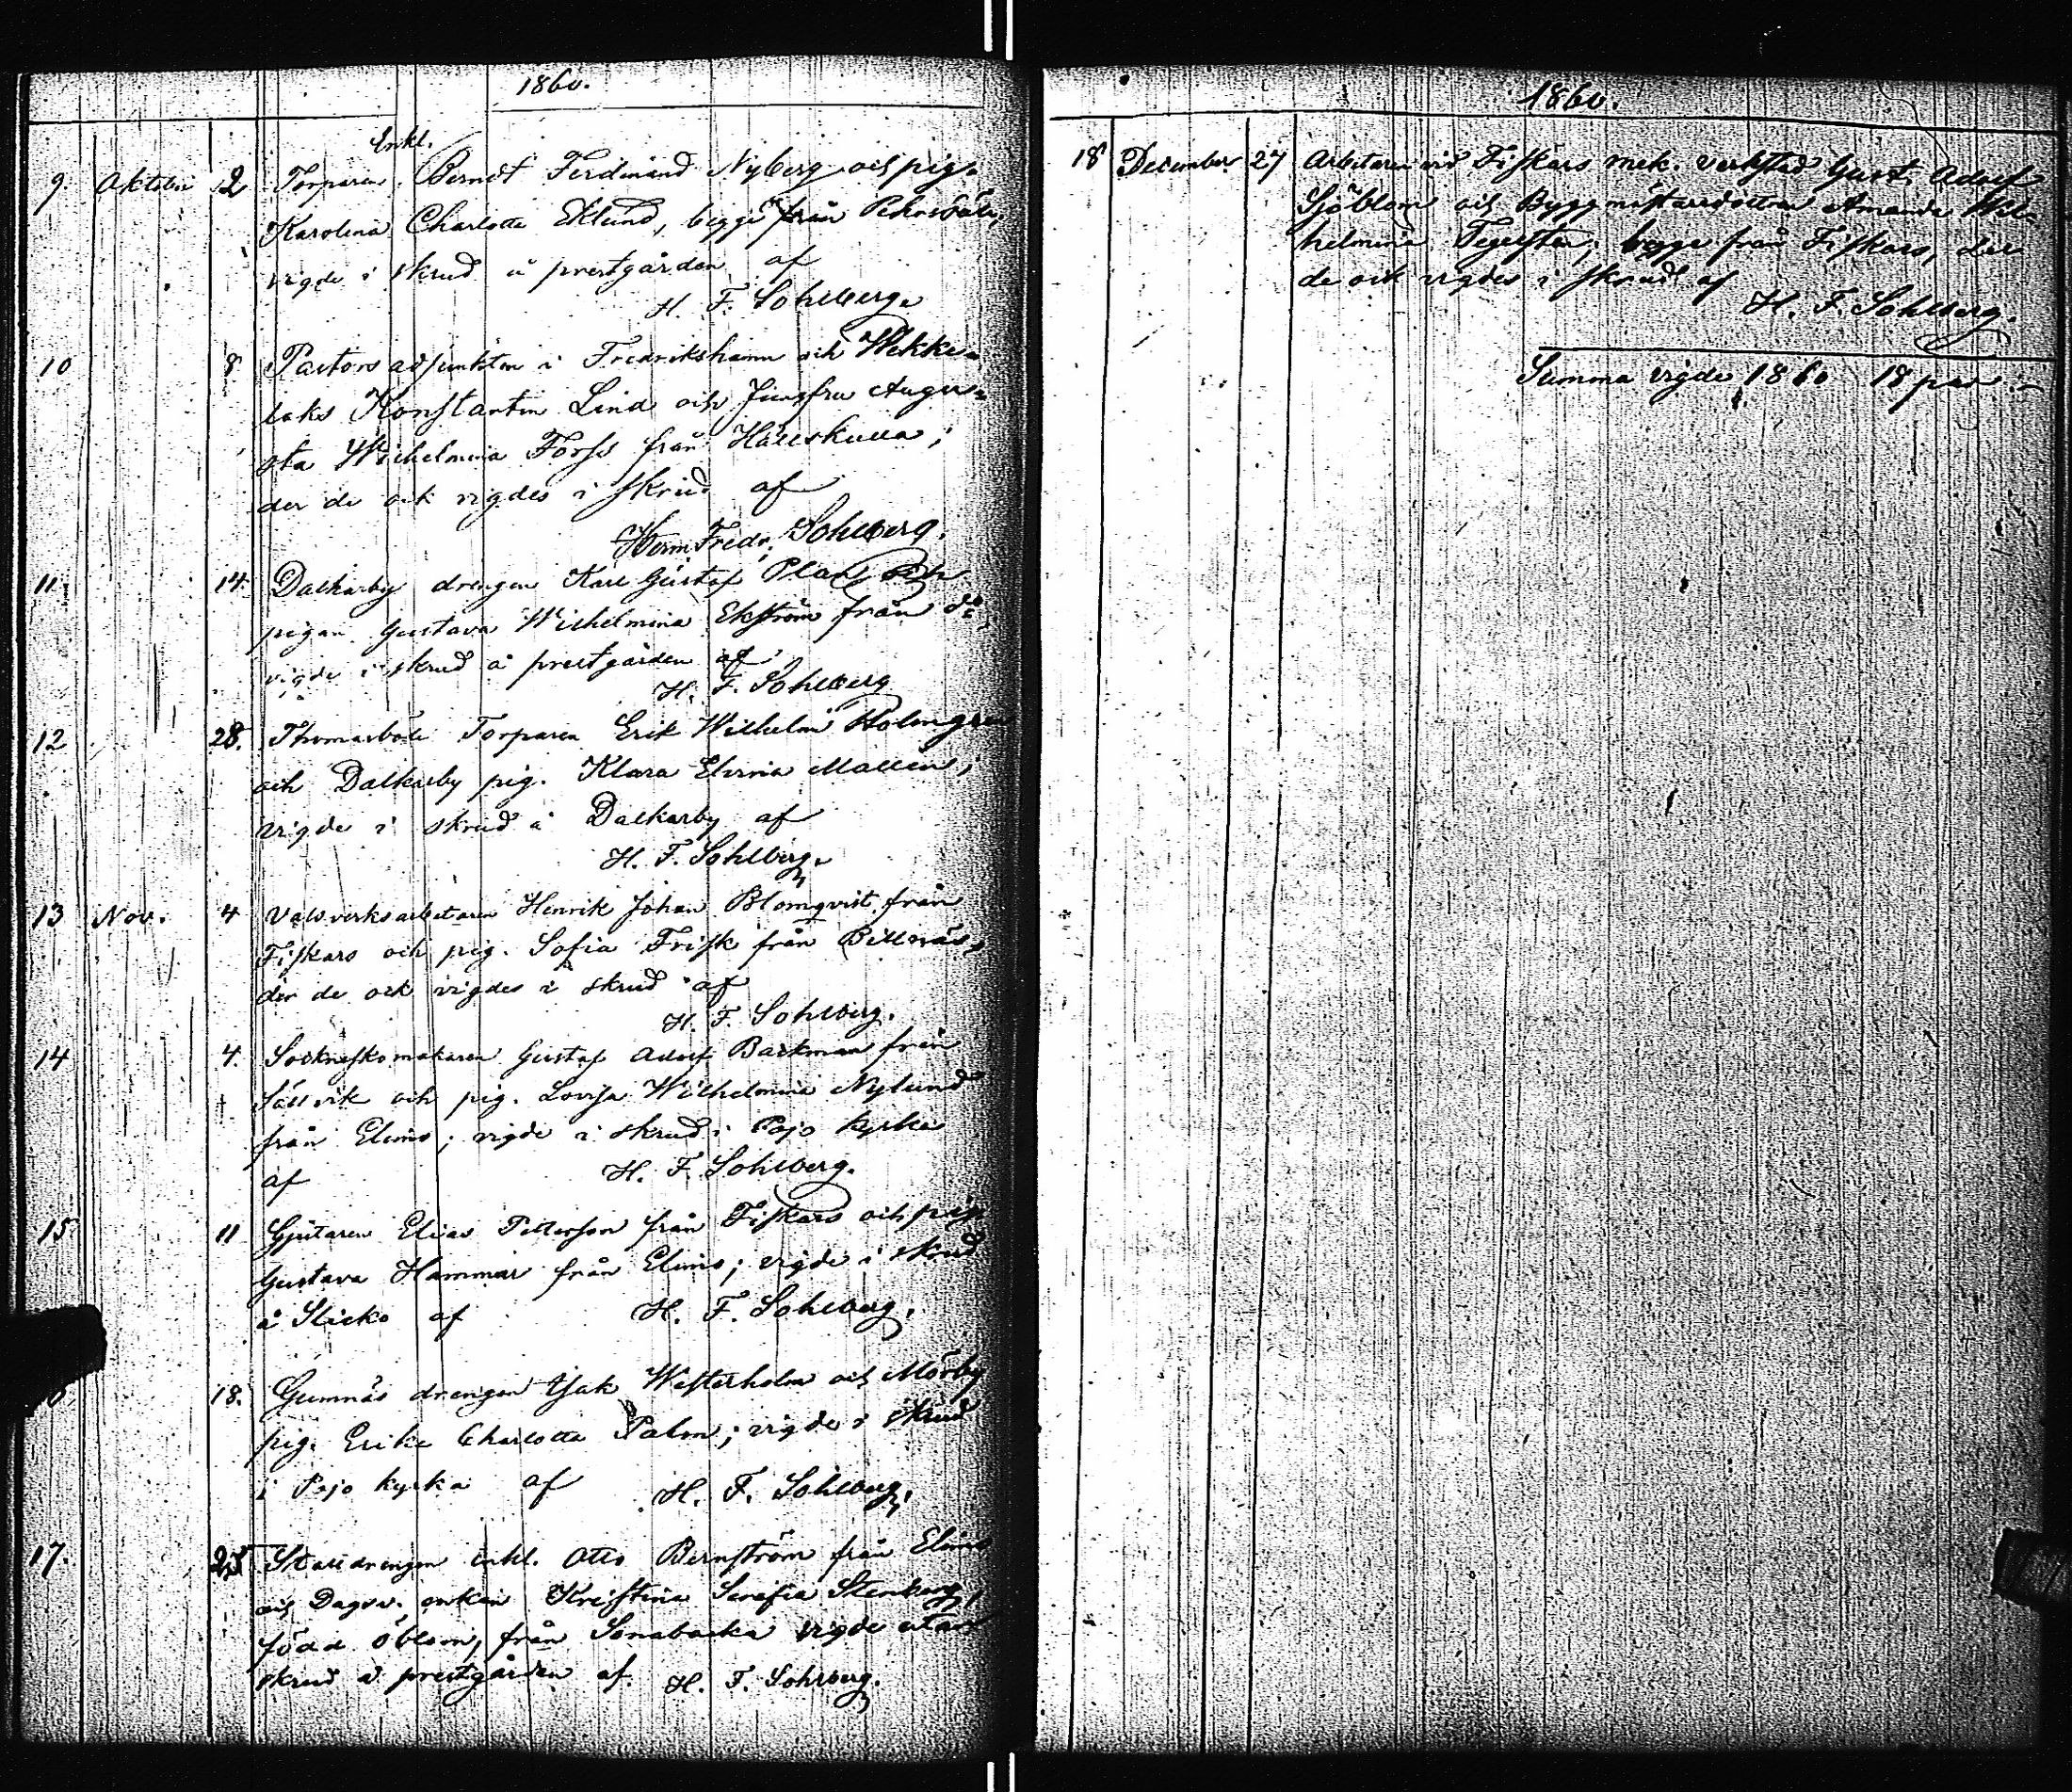 1860.
Enkl.
9. Oktober 2 Torparen Berndt Ferdinand Nyberg och pig.
Karolina Charlotta Eklund, begge från
vigde i skrud å prestgården af
H. F. Sohlberg.
10 8 Pastors adjunkten i Fredrikshamn och Wekke-
laks Konstantin Lind och Jungfru Augu-
sta Wilhelmina Forss från Hällskulla;
der de ock vigdes i skrud af
Herm. Fredr. Sohlberg.
11. 14. Dalkarby drengen Karl Gustaf Plan och
pigan Gustava Wilhelmina Ekström från do
vigde i skrud å prestgården af
H. F. Sohlberg
12 28. Thomasböle Torparen Erik Wilhelm Holmgren
och Dalkarby pig. Klara Elvina Mallén;
vigde i skrud å Dalkarby af
H. F. Sohlberg.
13 Nov. 4 Valsverksarbetaren Henrik Johan Blomqvist från
Fiskars och pig. Sofia Frisk från Billnäs,
der de ock vigdes i skrud af
H. F. Sohlberg.
14 4. Sockneskomakaren Gustaf Adolf Backman från
Sällvik och pig. Lovisa Wilhelmina Nylund
från Elimo; vigde i skrud i Pojo kyrka
af H. F. Sohlberg.
15 11 Gjutaren Elias Pettersson från Fiskars och pig.
Gustava Hammar från Elimo; vigde i skrud
å Slicko af H. F. Sohlberg.
18. Gumnäs drengen Isak Westerholm och Mörby
pig. Erika Charlotta Palm; vigde i skrud
i Pojo kyrka af H. F. Sohlberg.
17. 25 Staldrengen enkl. Otto Bernström från Elimo
och Dagsv. enkan Kristina Serafia Stenberg,
född Öblom, från Sonabacka vigde utan
skrud å prestgården af H. F. Sohlberg.
1860.
18 December 27 Arbetaren vid Fiskars mek. verkstad Gust. Adolf
Sjöblom och Byggmästaredottren Amanda Wil-
helmina Tegelsten; begge från Fiskars, der
de ock vigdes i skrud af
H. F. Sohlberg.
Summa vigde 1860 18 par.